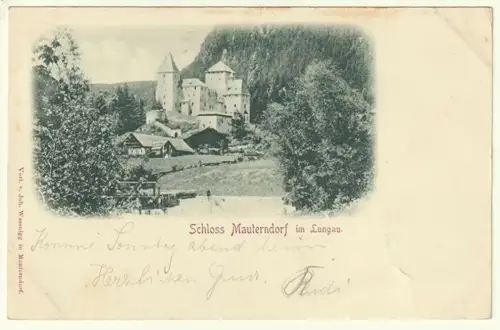 Schloss Mauterndorf im Lungau.
Komme Sonntag abend heim
Herzlichen Gruß Rudi
Verl. v. Joh. Wassnigg in Mauterndorf.